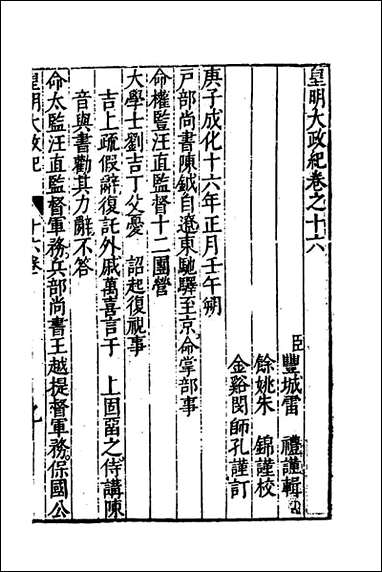 皇明大政紀卷之十六
臣豐城雷　禮謹輯
餘姚朱　錦謹校
金谿閔師孔謹訂
庚子成化十六年正月壬午朔
戶部尚書陳鉞自遼東馳驛至京命掌部事
命權監汪直監督十二團營
大學士劉吉丁父憂　詔起復視事
吉上疏假辭復託外戚萬喜言于　上固留之侍講陳
音與書勸其力辭不答
命太監汪直監督軍務兵部尚書王越提督軍務保國公
皇明大政紀　十六卷